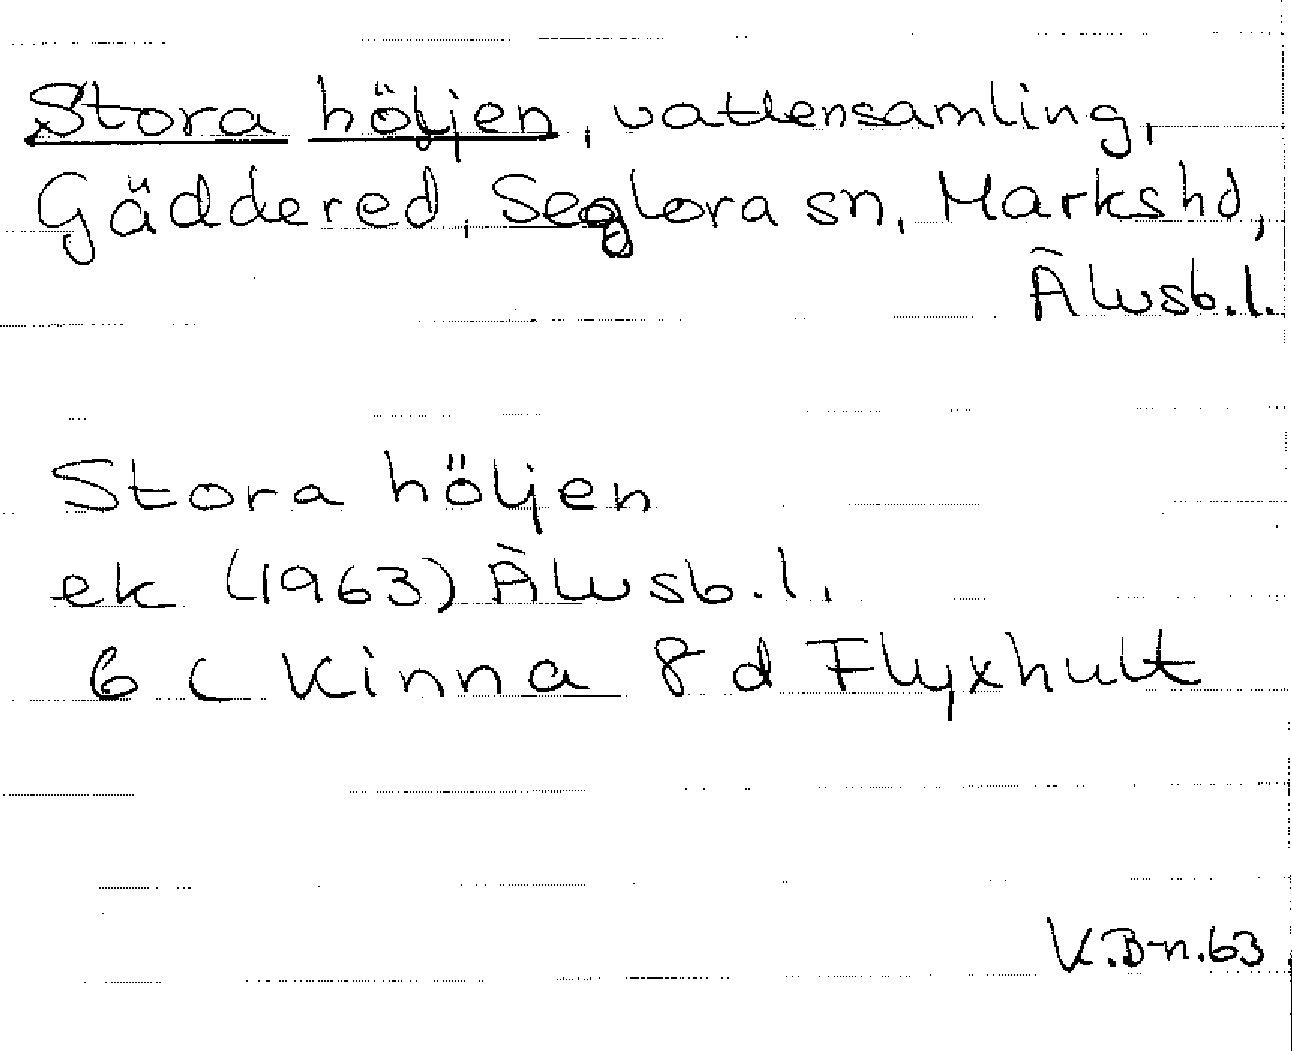 Stora höljen, vattensamling,
Gäddered, Seglora sn, Markshd,
Älvsb.l.
Stora höljen
ek (1963) Älvsb.l.
6 C Kinna 8 d Flyxhult
K.B-n.63